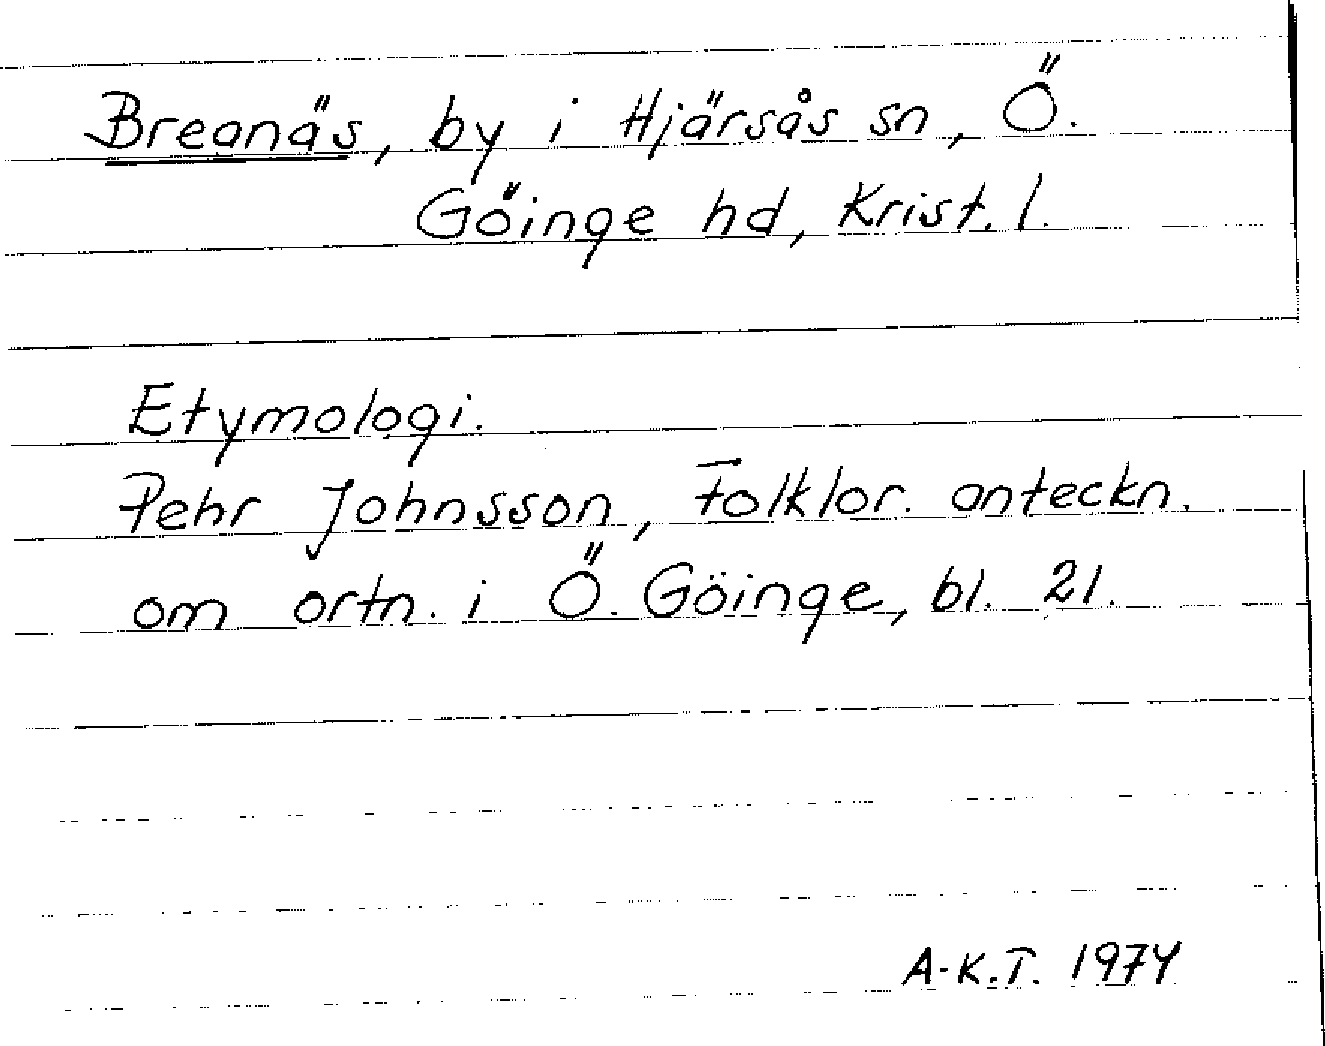 Breanäs, by i Hjärsås sn, Ö.
Göinge hd, Krist. l.
Etymologi.
Pehr Johnsson, Folklor. anteckn.
om ortn. i Ö. Göinge, bl. 21.
A-K.T. 1974